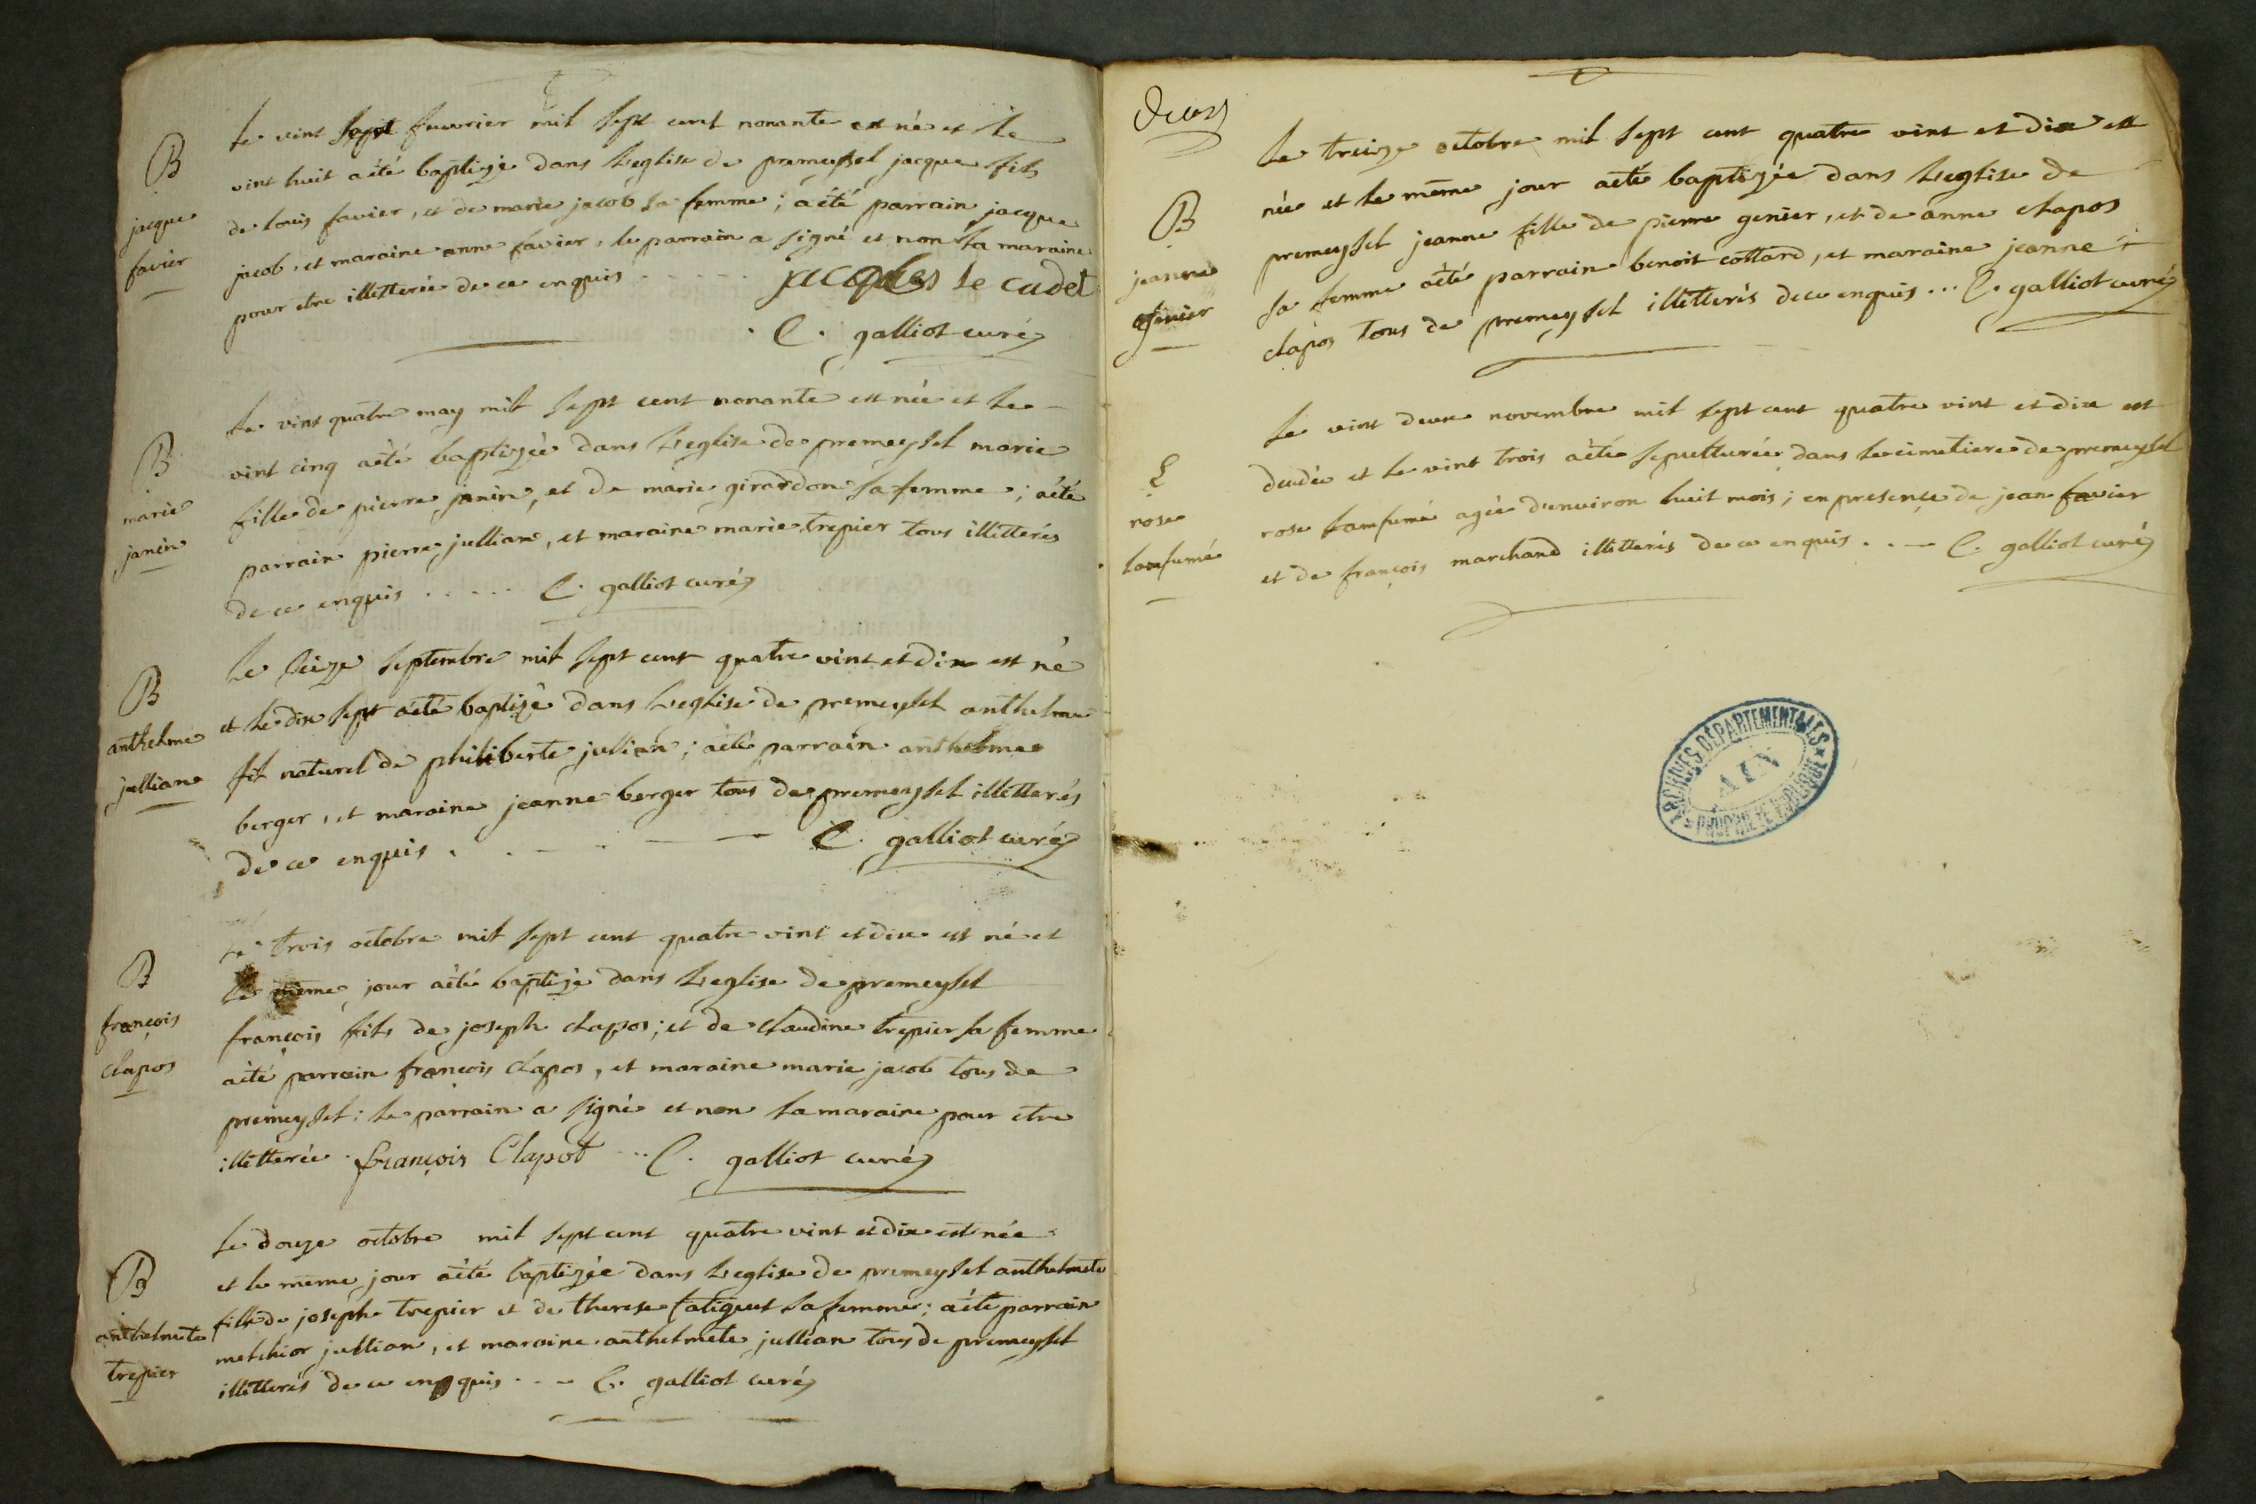 B
jacque
favier
le vint sept fuvrier mil sept cent nonante est né et le
vint huit aété baptizé dans l'eglise de premeysel jacque fils
de louis favier, et de marie jacob sa femme ; aété parrain jacque
jacob, et maraine anne favier, le parrain a signé et non la maraine
pour etre illetterée de ce enquis . . . . . jacques le cadet
C. galliot curé
B
marie
janin
Le vint quatre may mil sept cent nonante est née et le
vint cinq aété baptizée dans l'eglise de premeysel marie
fille de pierre janin, et de marie girardon sa femme ; aété
parrain pierre jullian, et maraine marie trepier tous illetterés
de ce enquis . . . . . C. galliot curé
B
anthelme
jullian
Le seize septembre mil sept cent quatre vint et dix est né
et le dix sept aété baptizé dans l'eglise de premeysel anthelme
fil naturel de philiberte jullian ; aété parrain anthelme
berger, et maraine jeanne berger tous de premeysel illetterés
de ce enquis . . . C. galliot curé
B
françois
clapos
Le trois octobre mil sept cent quatre vint et dix est né et
le même jour aété baptizé dans l'eglise de premeysel
françois fils de joseph clapos ; et de claudine trepier sa femme
aété parrain françois clapos, et maraine marie jacob tous de
premeysel : le parrain a signé et non la maraine pour etre
illetterée . françois Clapot ... C. galliot curé
B
anthelmete
trepier
Le douze octobre mil sept cent quatre vint et dix est née
et le même jour aété baptizée dans l'eglise de premeysel anthelmete
fille de joseph trepier et de therese sa femme ; aété parrain
melchior jullian, et maraine anthelmete jullian tous de premeysel
illetterés de ce enquis . . . C. galliot curé
deux
B
jeanne
genier
Le treize octobre mil sept cent quatre vint et dix est
née et le même jour aété baptizée dans l'eglise de
premeysel jeanne fille de pierre genier, et de anne clapos
sa femme aété parrain benoit cottard, et maraine jeanne
clapos tous de premeysel illetterés de ce enquis ... C. galliot curé
S
rose
lanfumé
Le vint deux novembre mil sept cent quatre vint et dix est
decedée et le vint trois aété sepulturée dans le cimetiere de premeysel
rose lanfumé agée d'environ huit mois ; en presence de jean favier
et de françois marchand illetterés de ce enquis . . . C. galliot curé
ARCHIVES DÉPARTEMENTALES
AIN
PROPRIÉTÉ PUBLIQUE